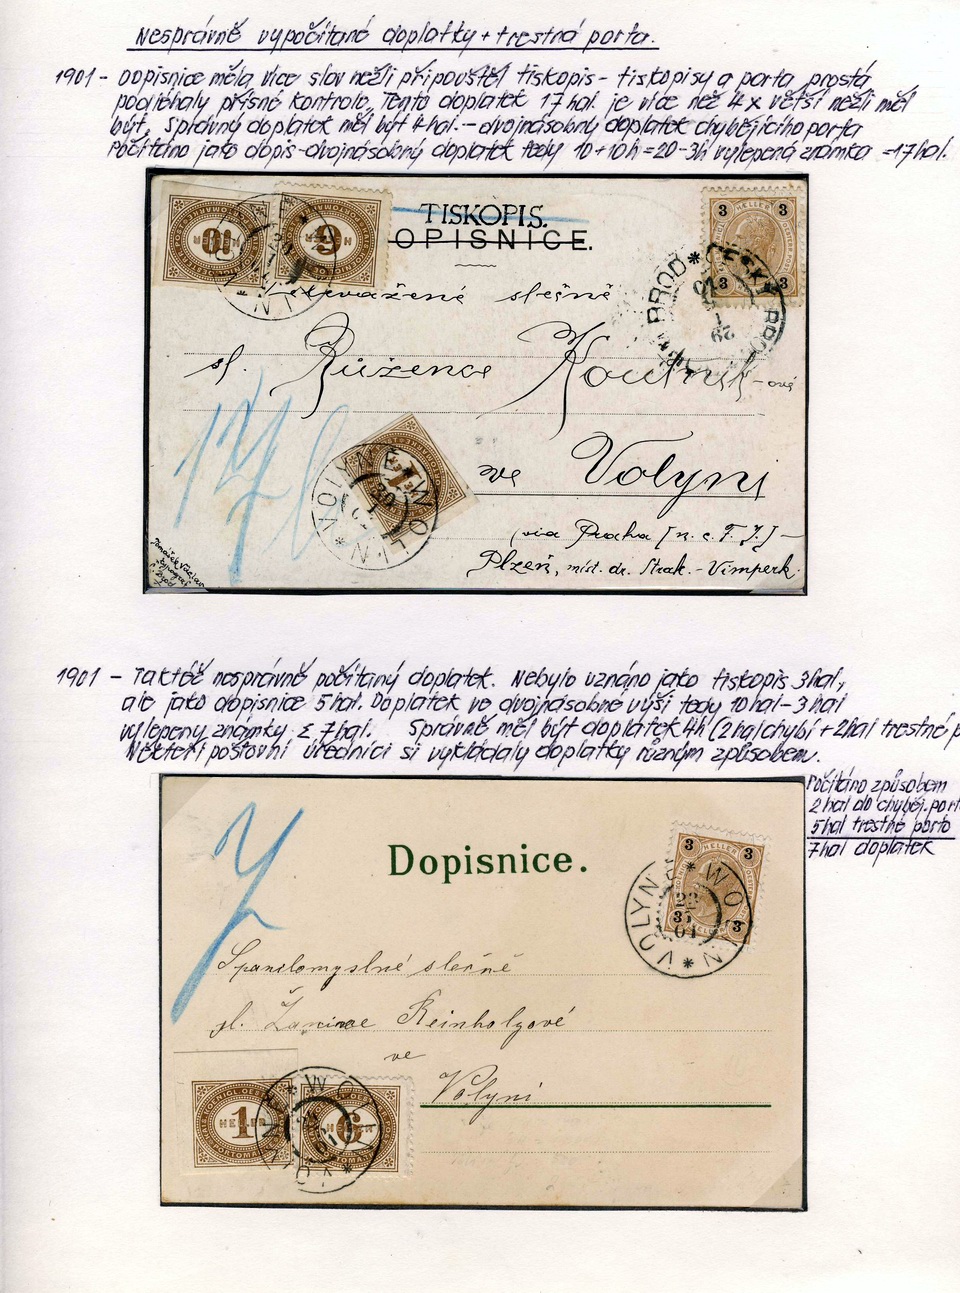 Nesprávně vypočítané doplatky + trestná porta.
1901 - Dopisnice měla více slov nežli připouštěl tiskopis - tiskopisy a porta prostá
podléhaly přísné kontrole. Tento doplatek 17 hal. je více než 4x větší nežli měl
být. Správný doplatek měl být 4 hal. - dvojnásobný doplatek chybějícího porta
Počítáno jako dopis - dvojnásobný doplatek tedy 10+10h=20-3h vylepená známka = 17 hal.
TISKOPIS.
OPISNICE.
10
6
3 HELLER 3
3 3
ČESKÝ BROD
slečně
sl. Růžence Koutník-ové
ve Volyni
17
1
WOLLIN
VOLYNĚ
(via Praha [n. c. F. J.] -
Plzeň, míst. dr. Strak. - Vimperk.
1901 - Taktéž nesprávně počítaný doplatek. Nebylo uznáno jako tiskopis 3 hal,
ale jako dopisnice 5 hal. Doplatek ve dvojnásobné výši tedy 10 hal - 3 hal
vylepený známky Σ 7 hal. Správně měl být doplatek 4h (2 hal chybí + 2 hal trestné p
Někteří poštovní úředníci si vykládaly doplatky různým způsobem.
Počítáno způsobem
2 hal do chyběj. port
5 hal trestné porto
7 hal doplatek
7
Dopisnice.
3 HELLER 3
3
WOLLIN
VOLYNĚ
Spanilomyslné slečně
sl. Reinholzové
ve
Volyni
1 HELLER
6
WOLLIN
VOLYNĚ